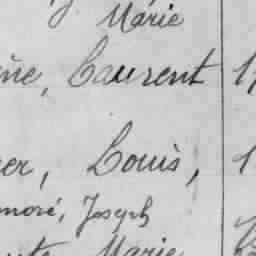 Marie
ne, Laurent 1
er, Louis, 1
noré, Joseph
Marie